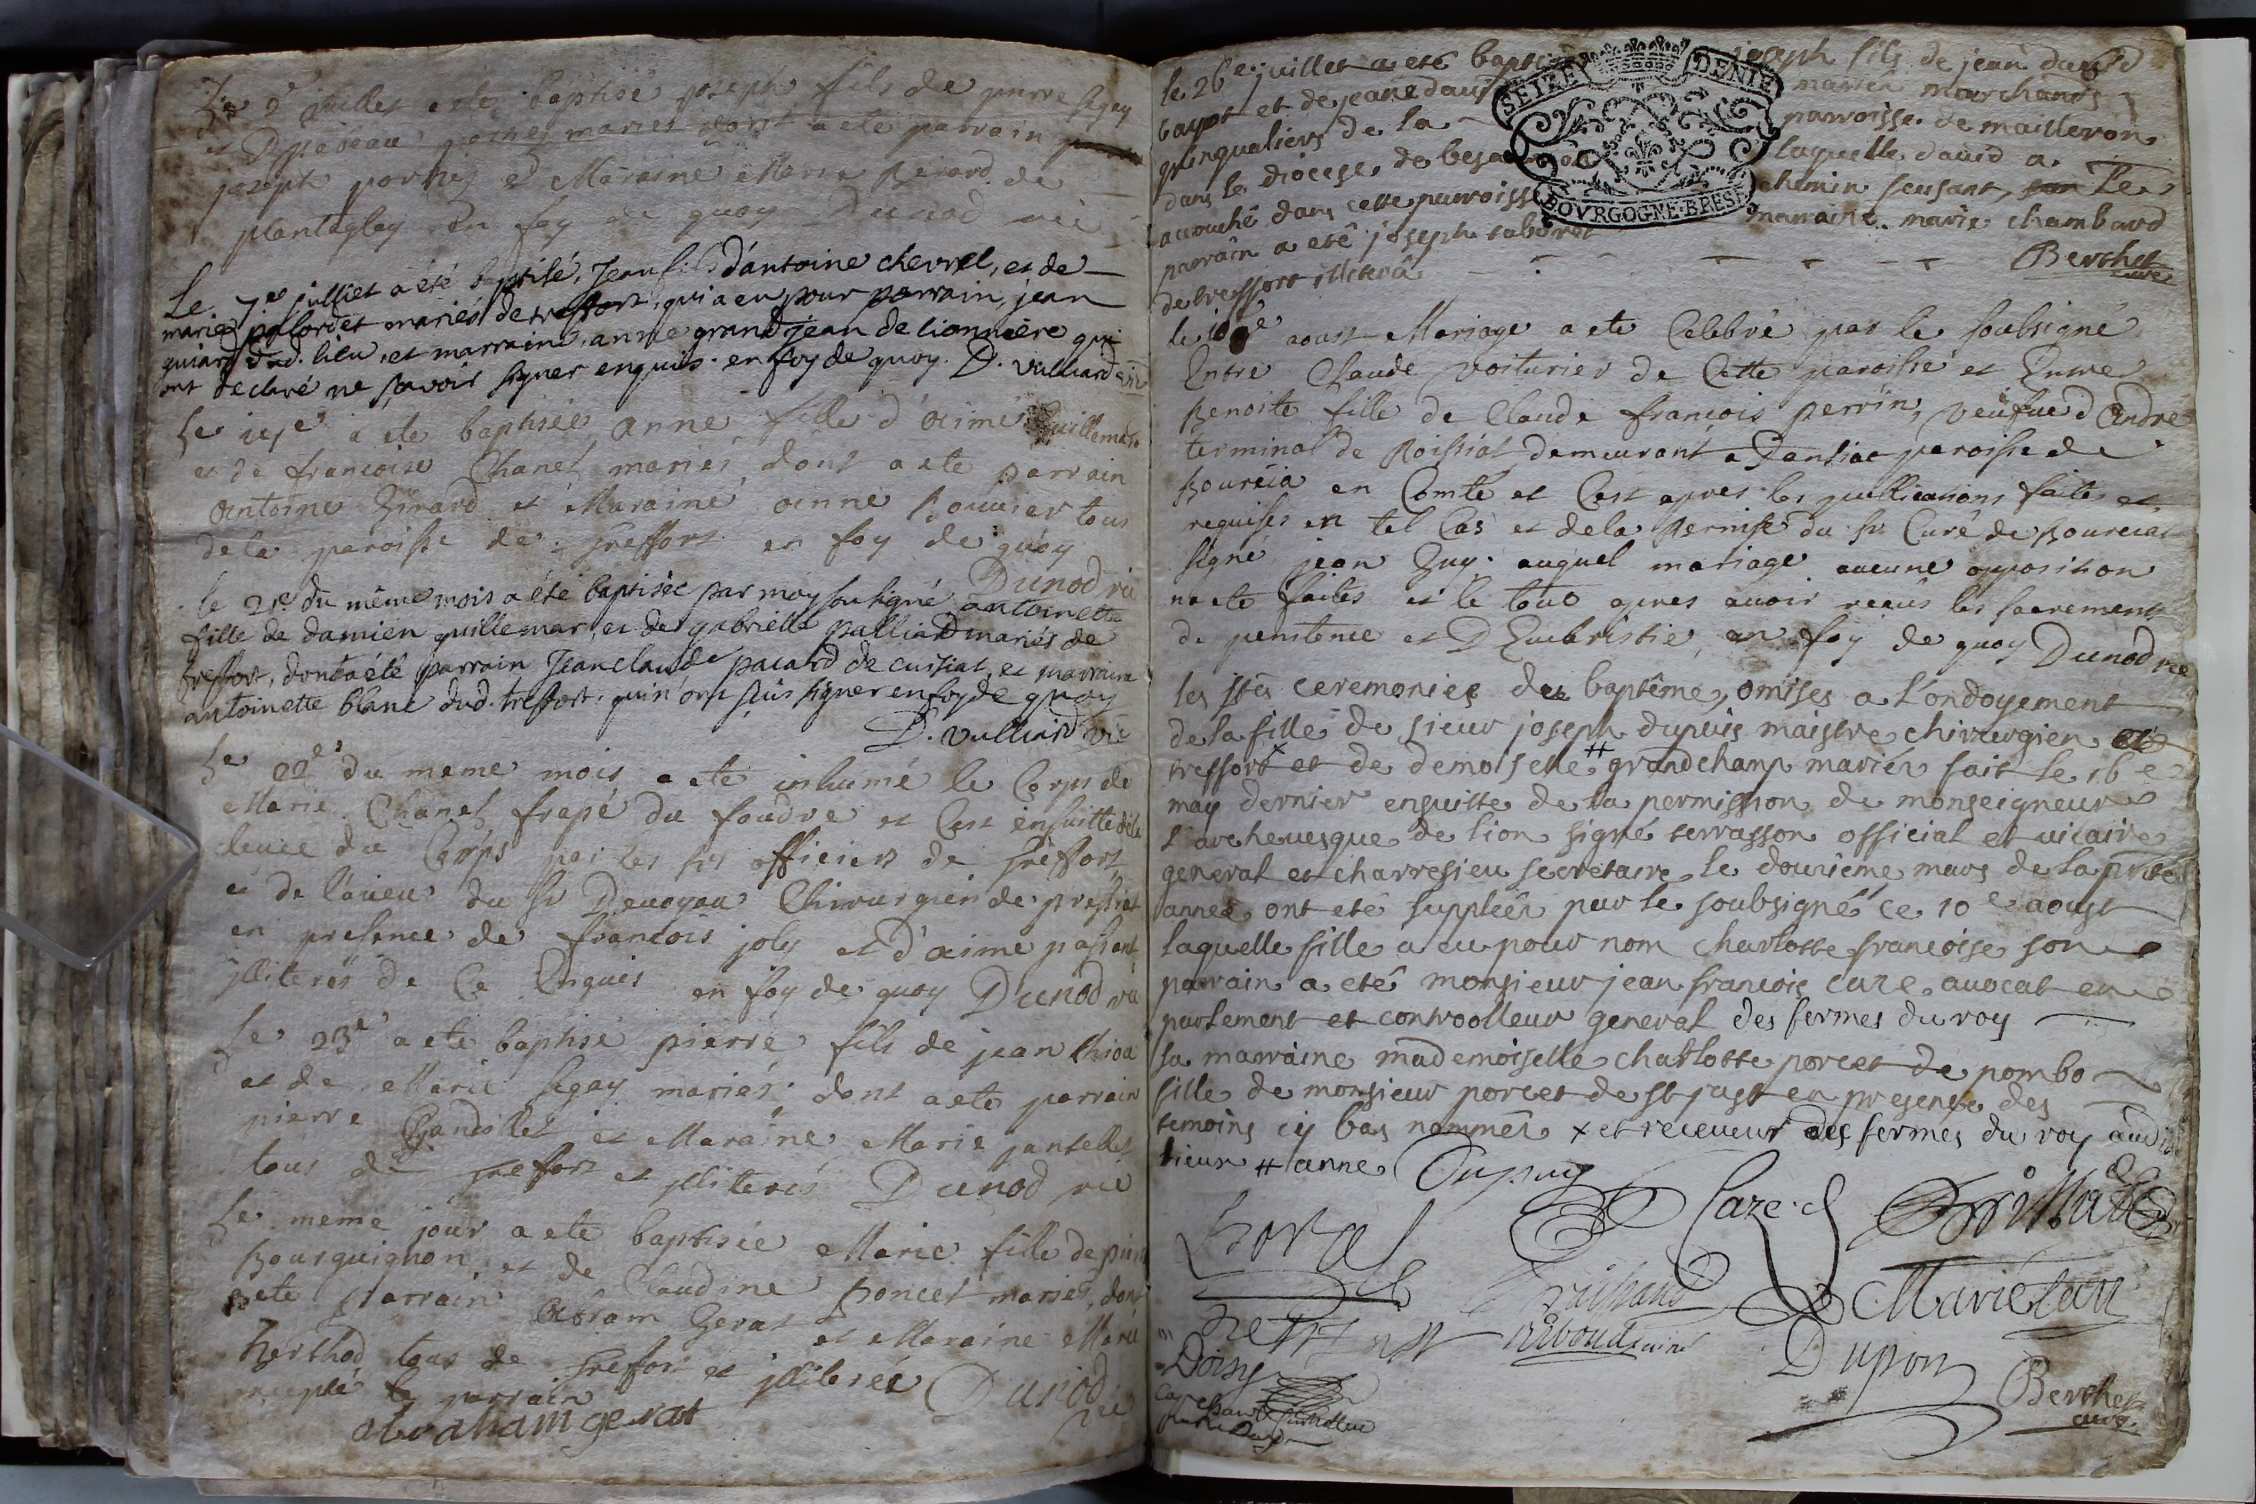 Le 2e juillet a ete baptisé joseph fils de pierre segay
et mariés dont a ete parrain
joseph et Maraine Marie Berard de
plantaglay en foy de quoy Dunod vic
Le 7me julliet a été baptisé, Jean fils d'antoine chevrel, et de
marie palordet mariés de treffort, qui a eu pour parrain, jean
guiard dud. lieu, et marraine, anne grandjean de lionniere qui
ont declaré ne sçavoir signer enquis. en foy de quoy. D. vulliard vic
Le a ete baptisée anne fille d'aimé Guillemar
et de francoise Chanel mariés dont a ete parrain
Antoine Girard et Maraine anne Bouvier tous
de la paroisse de Treffort en foy de quoy
Dunod vic
le 21e du même mois a été baptisée par moy sousigné antoinette
fille de damien guillemar, et de gabrielle palliard mariés de
treffort, dont a été parrain Jean claude pacard de cuisiat, et marraine
antoinette blanc dud. treffort. qui n'ont sçu signer en foy de quoy
D. vulliard vic
Le 22e du meme mois a ete inhumé le Corps de
Marie Chanel frapé du foudre et Cest ensuitte de la
levée du Corps par les srs officiers de Treffort
et de l'aveu du Sr Devoyau Chirurgien de pressiat
en presence de francois joly et d'aimé passant
jlliterés de Ce Enquis en foy de quoy Dunod vic
Le 23e a ete baptisé pierre fils de jean
et de Marie segay mariés dont a ete parrain
pierre Chandillet et Maraine Marie jantellet
tous de trefort et jlliterés Dunod vic
Le meme jour a ete baptisée Marie fille de pierre
Bourguignon et de Claudine Poncet mariés, dont
a ete parrain Abram Gerat et Maraine Marie
Berthod tous de Trefort et jlliterés
excepté le parrain Dunod vic
abraham gerat
le 26e juillet a eté baptisé joseph fils de jean david
bayot et de jeane david mariés marchands
quinqualiers de la parroisse de mailleron
dans le diocese de besançon laquelle david a
acouché dans cette parroisse chemin feusant, Le
parrain a eté joseph taborot marraine marie chambard
de treffort illiterâ Berthet curé
le 10e aoust Mariage a ete Celebré par le soubsigné
Entre Claude voiturier de Cette paroisse et Entre
Benoite fille de Claude francois perrin, veufue d'André
terminal de Roissiat demeurant a Dansiat paroisse de
Bourcia en Comté et Cest apres les publications faites et
requises en tel Cas et de la Permise du Sr Curé de Bourciat
signé jean Guy. auquel mariage aucune opposition
na ete faites et le tout apres avoir reçus les sacrements
de penitence et D'Eucaristie, en foy de quoy Dunod vic
les stes ceremonies du baptême, omises a l'ondoyement
de la fille de sieur joseph dupuis maistre chirurgien
treffort x et de demoiselle # grandchamp mariés fait le 16e
may dernier ensuitte de la permission de monseigneur
l'archeuesque de lion signé terrasson official et vicaire
general et charresieu secretaire le douzieme mars de la pnte
année, ont eté suppleés par le soubsigné ce 10e aoust
laquelle fille a eu pour nom charlotte francoise son
parrain a eté monsieur jean francois caze avocat en
parlement et controolleur general des fermes du roy
sa marraine mademoiselle charlotte porcet de pombo
fille de monsieur porcet de st just en presence des
temoins cy bas nommés x et receveur des fermes du roy aud
lieux # anne Dupuy
Caze
Marié
riboud
Doisy
Dupon
Berthet
curé
SEIZE DENIE
BOVRGOGNE·BRESE